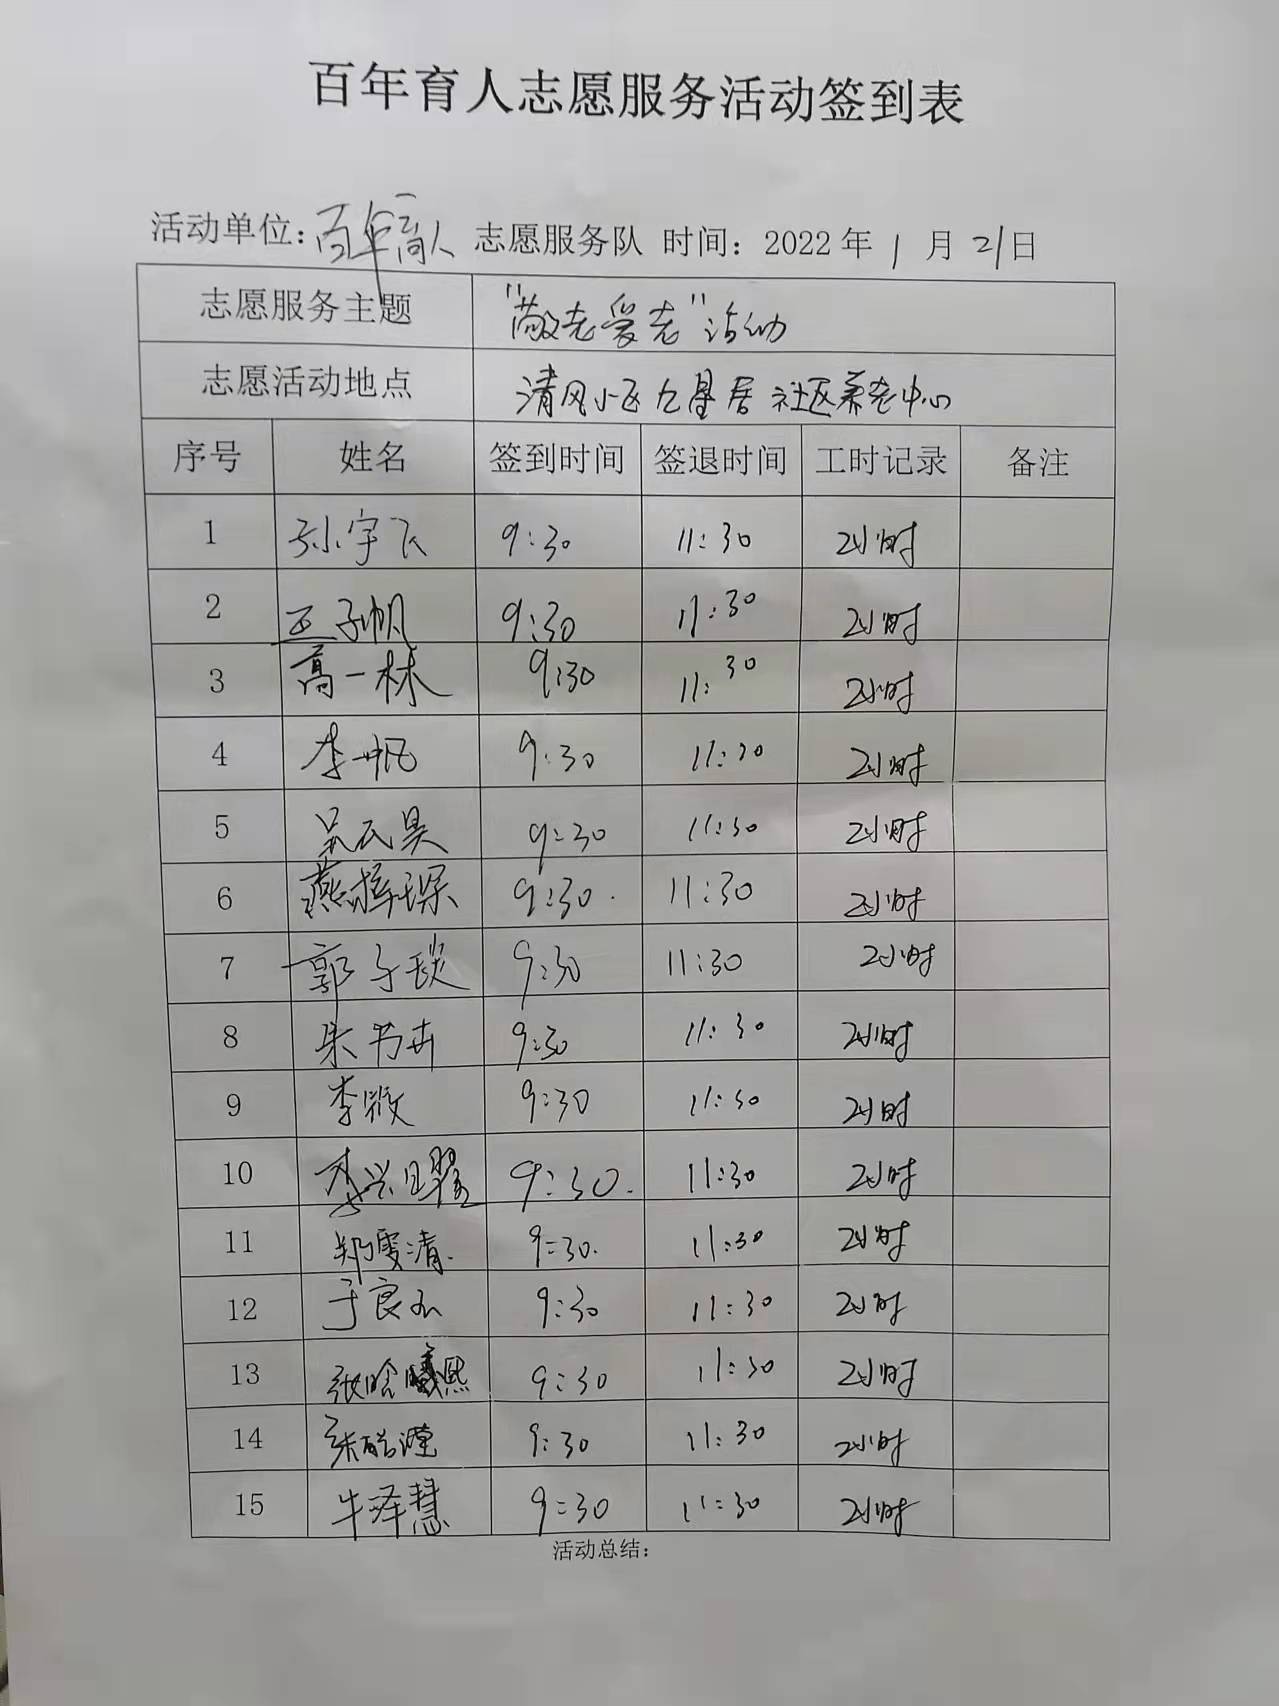 百年育人志愿服务活动签到表
活动单位：百年育人 志愿服务队 时间：2022年 1 月 21日
志愿服务主题 "敬老爱老"活动
志愿活动地点 清风小区九星居社区养老中心
序号 姓名 签到时间 签退时间 工时记录 备注
1 孙宇飞 9:30 11:30 2小时
2 王子帆 9:30 11:30 2小时
3 高一林 9:30 11:30 2小时
4 李一帆 9:30 11:30 2小时
5 吴昊 9:30 11:30 2小时
6 燕梓琛 9:30 11:30 2小时
7 郭子琰 9:30 11:30 2小时
8 朱书卉 9:30 11:30 2小时
9 李 9:30 11:30 2小时
10 李兴 9:30. 11:30 2小时
11 郑雯清. 9:30. 11:30 2小时
12 于良 9:30 11:30 2小时
13 张晗熙 9:30 11:30 2小时
14 9:30 11:30 2小时
15 牛泽慧 9:30 11:30 2小时
活动总结：